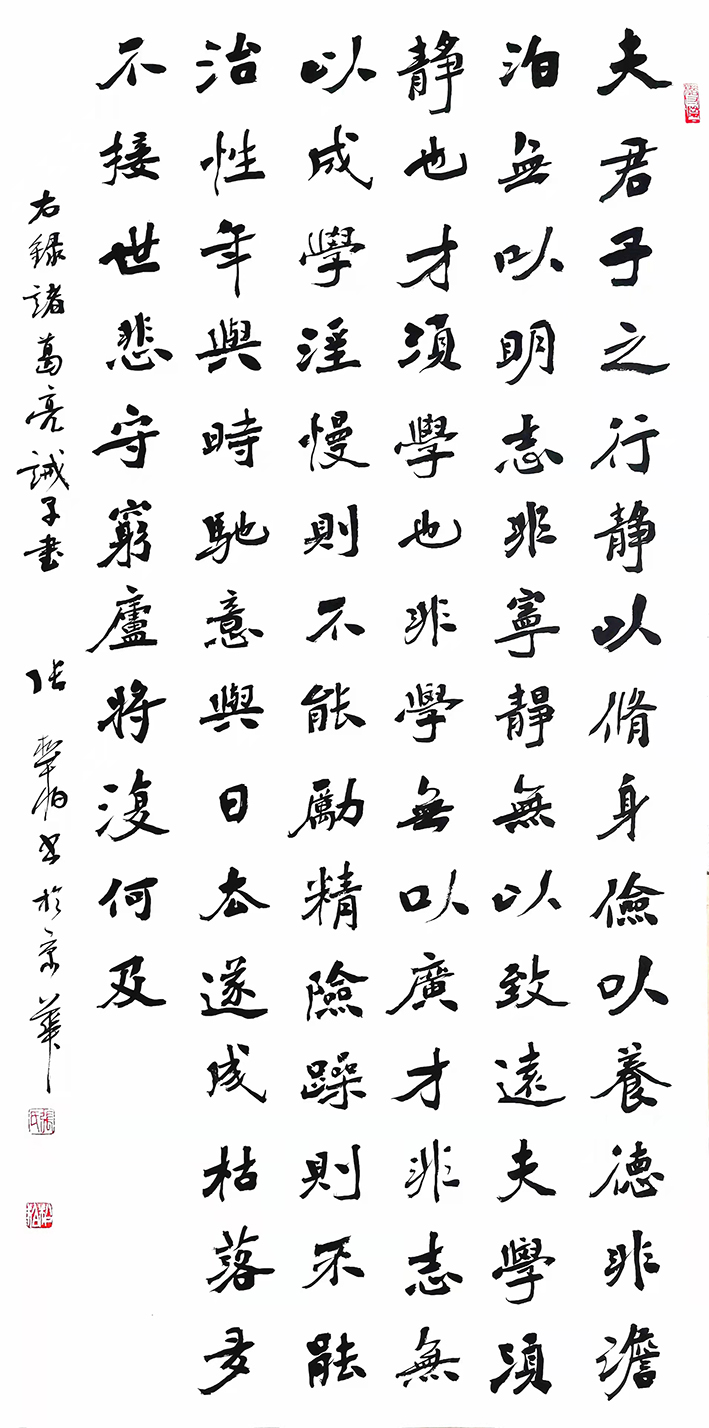 夫君子之行静以脩身儉以養德非澹
泊無以明志非寧静無以致遠夫學須
静也才須學也非學無以廣才非志無
以成學淫慢則不能勵精險躁則不能
治性年與時馳意與日去遂成枯落多
不接世悲守窮廬將復何及
右録諸葛亮誡子書 張書於京華